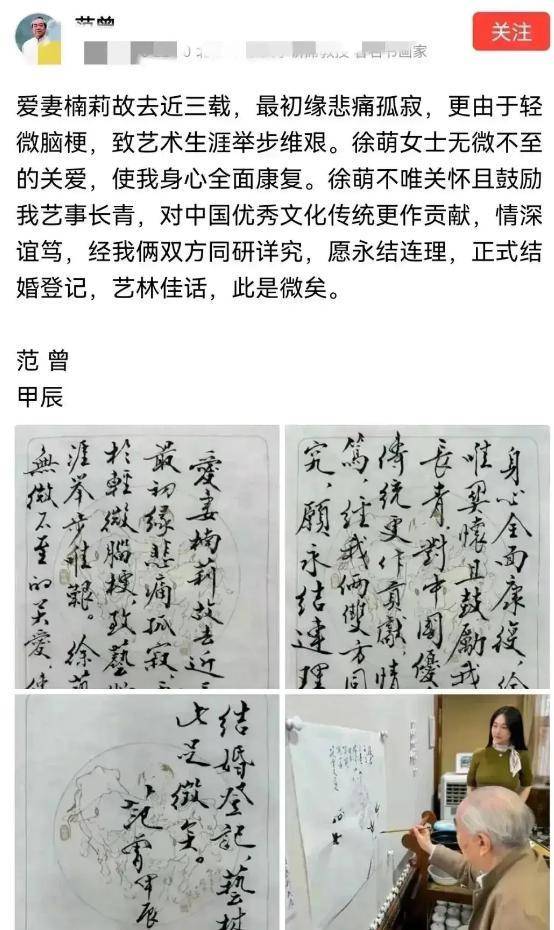 范曾
关注
席教授 著名书画家
爱妻楠莉故去近三载，最初缘悲痛孤寂，更由于轻
微脑梗，致艺术生涯举步维艰。徐萌女士无微不至
的关爱，使我身心全面康复。徐萌不唯关怀且鼓励
我艺事长青，对中国优秀文化传统更作贡献，情深
谊笃，经我俩双方同研详究，愿永结连理，正式结
婚登记，艺林佳话，此是微矣。
范 曾
甲辰
愛妻楠莉故去近三
最初缘悲痛孤寂
於輕微腦梗，致藝
涯举步維艱。徐萌
無微不至的关爱，使
身心全面康復，徐
唯関懷且鼓勵我
長青，對中國優
傳統更作貢獻，情
篤，經我倆雙方同
究，願永结連理
结婚登记，藝林
此足徵矣。
范曾甲辰